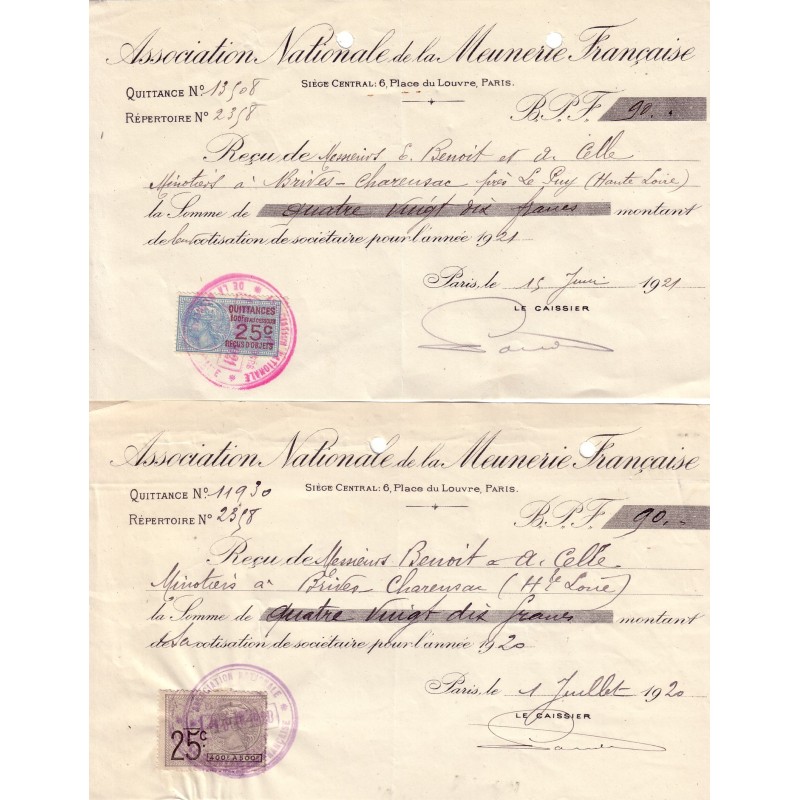 Association Nationale de la Meunerie Française
Siège Central: 6, Place du Louvre, Paris.
Quittance No. 13508
B.P.F. 90.
Répertoire No 2358
Reçu de Messieurs E. Benoit et A. Celle
Minotiers à Brives-Charensac près Le Puy (Haute Loire)
la Somme de quatre vingt dix francs montant
de leur cotisation de sociétaire pour l'année 1921
Paris, le 15 Juin 1921
LE CAISSIER
QUITTANCES
25c
REÇUS D'OBJETS
NATIONALE
Association Nationale de la Meunerie Française
Siège Central: 6, Place du Louvre, Paris.
Quittance No. 11930
B.P.F. 90.
Répertoire No 2358
Reçu de Messieurs Benoit & A. Celle
Minotiers à Brives Charensac (Hte Loire)
la Somme de quatre vingt dix francs montant
de la cotisation de sociétaire pour l'année 1920
Paris, le 1 Juillet 1920
LE CAISSIER
ASSOCIATION NATIONALE
25c.